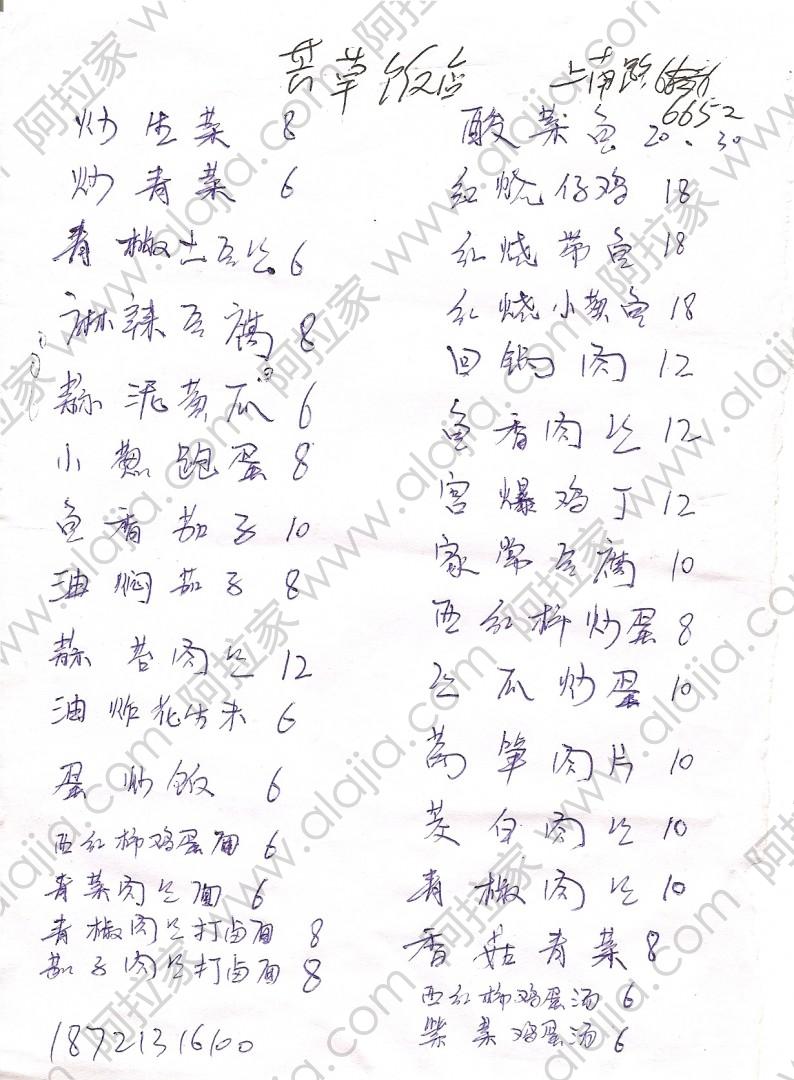 芸草饭店 上南路
6652
炒生菜 8
炒青菜 6
青椒土豆丝 6
麻辣豆腐 8
蒜泥黄瓜 6
小葱跑蛋 8
鱼香茄子 10
油焖茄子 8
蒜苔肉丝 12
油炸花生米 6
蛋炒饭 6
西红柿鸡蛋面 6
青菜肉丝面 6
青椒肉丝打卤面 8
茄子肉丝打卤面 8
18721316100
酸菜鱼 20、30
红烧仔鸡 18
红烧带鱼 18
红烧小黄鱼 18
回锅肉 12
鱼香肉丝 12
宫爆鸡丁 12
家常豆腐 10
西红柿炒蛋 8
丝瓜炒蛋 10
莴笋肉片 10
茭白肉丝 10
青椒肉丝 10
香菇青菜 8
西红柿鸡蛋汤 6
紫菜鸡蛋汤 6
阿拉家 www.alajia.com